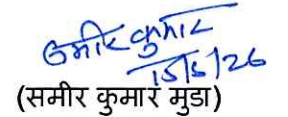 समीर कुमार
15/5/26
(समीर कुमार मुडा)